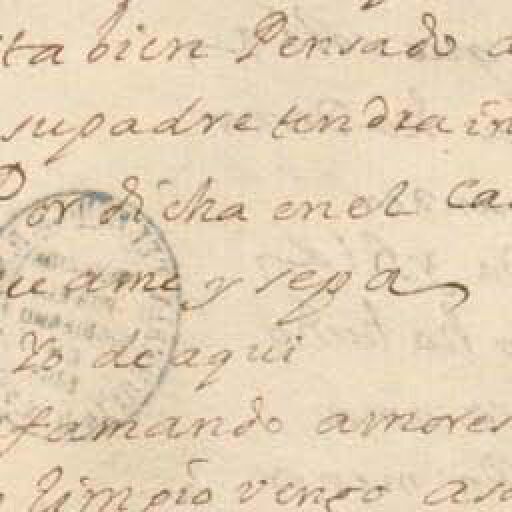 ta bien Pensado a
su padre tendra in
Por dicha en el Ca
ue ame y sepa
Yo de aqui
famando amores
limpio vengo as